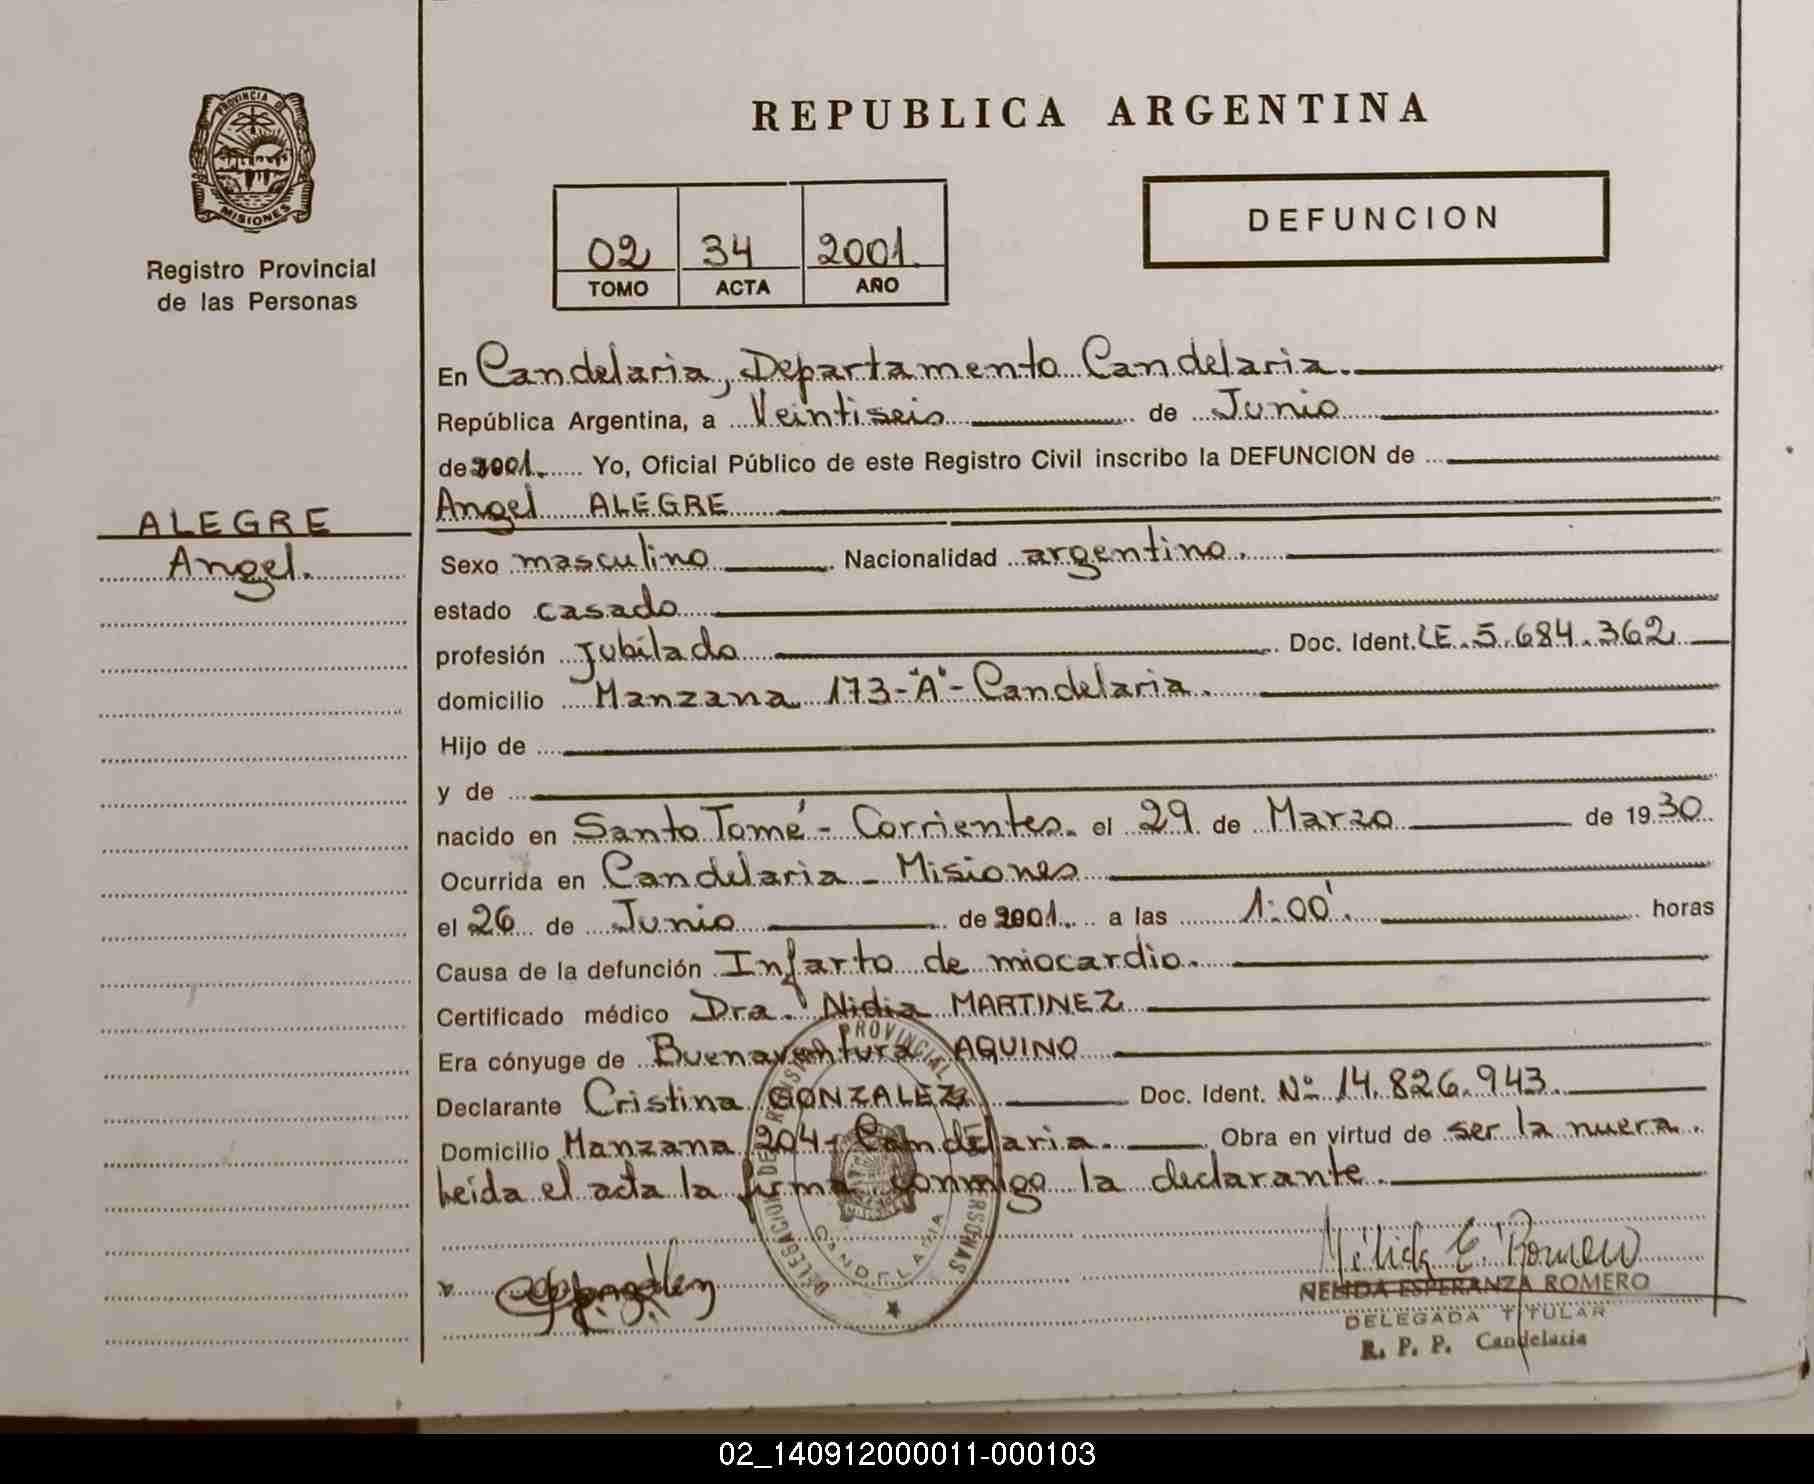 PROVINCIA DE
MISIONES
Registro Provincial
de las Personas
ALEGRE
Angel.
REPUBLICA ARGENTINA
02 34 2001
TOMO ACTA AÑO
DEFUNCION
En Candelaria, Departamento Candelaria.
República Argentina, a Veintiseis de Junio
de 2001. Yo, Oficial Público de este Registro Civil inscribo la DEFUNCION de
Angel ALEGRE
Sexo masculino Nacionalidad argentino.
estado casado
profesión Jubilado Doc. Ident. LE. 5.684.362
domicilio Manzana 173-"A"- Candelaria.
Hijo de
y de
nacido en Santo Tomé - Corrientes. el 29 de Marzo de 1930
Ocurrida en Candelaria - Misiones
el 26 de Junio de 2001. a las 1:00'. horas
Causa de la defunción Infarto de miocardio.
Certificado médico Dra. Nidia MARTINEZ
Era cónyuge de Buenaventura AQUINO
Declarante Cristina GONZALEZ Doc. Ident. Nº 14.826.943.
Domicilio Manzana 204- Candelaria. Obra en virtud de ser la nuera.
Leída el acta la firma conmigo la declarante.
DELEGACION DEL REGISTRO PROVINCIAL DE PERSONAS
CANDELARIA
Nélida E. Romero
NELIDA ESPERANZA ROMERO
DELEGADA TITULAR
R. P. P. Candelaria
02_140912000011-000103